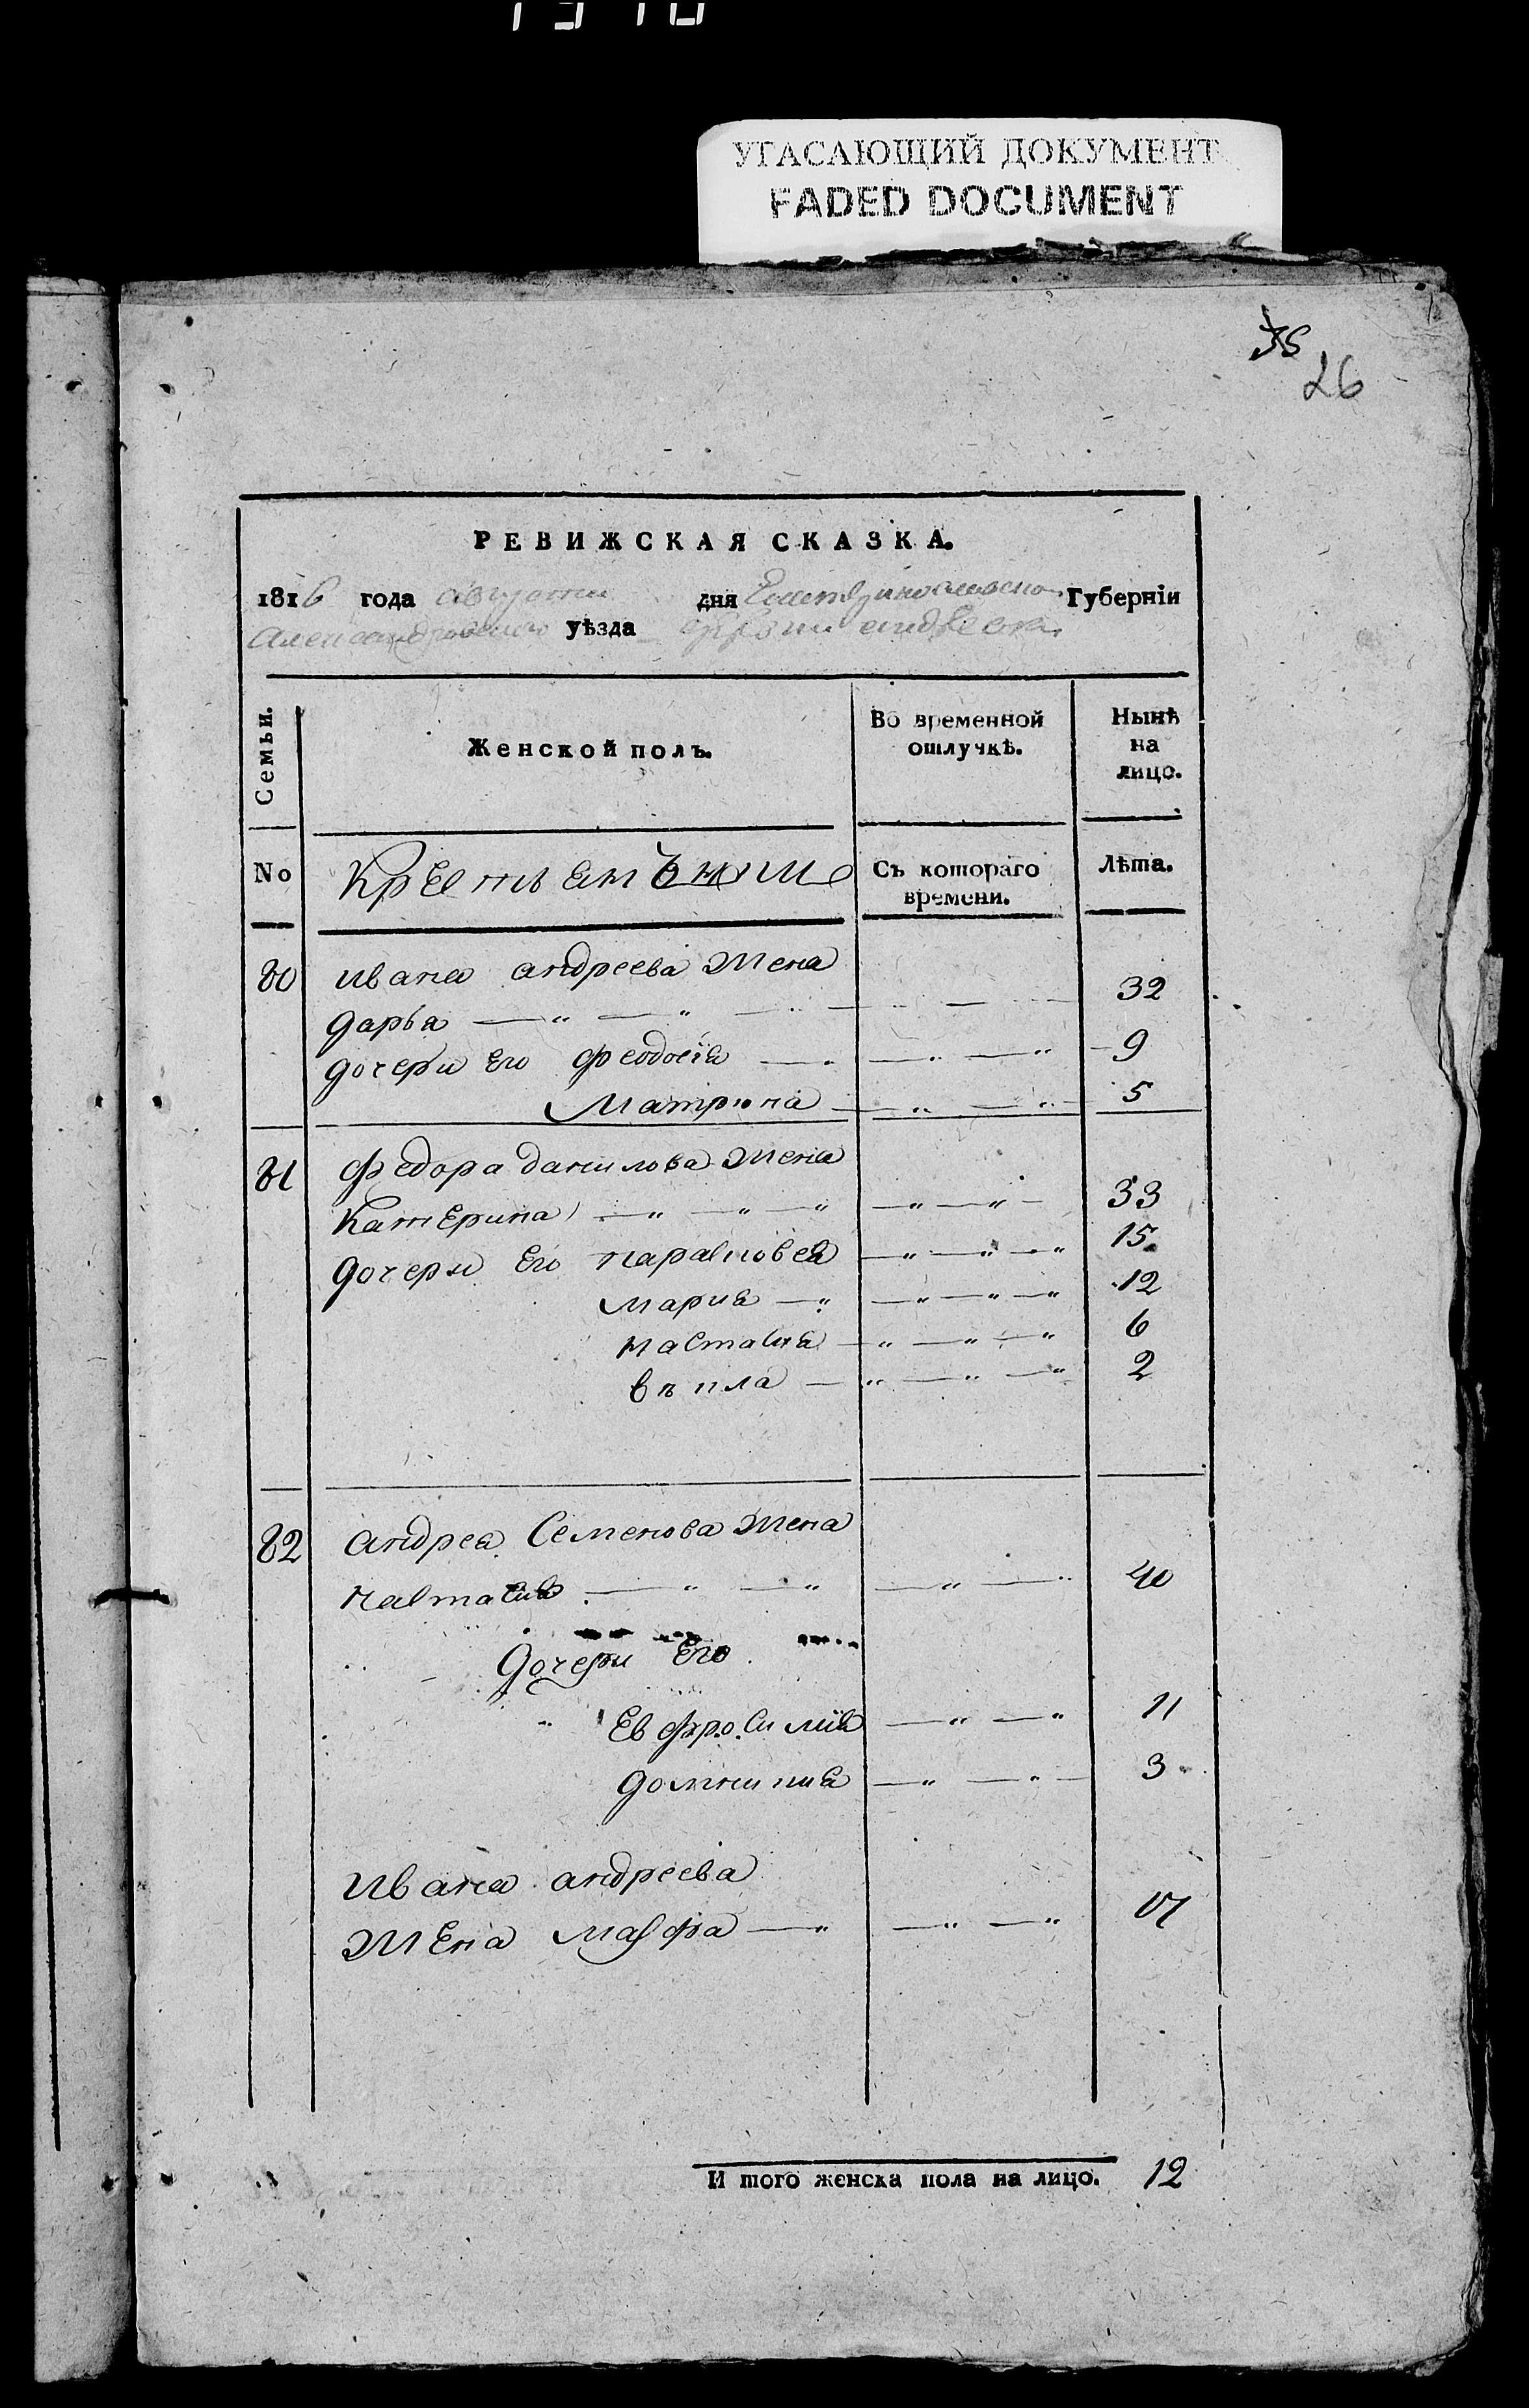 УГАСАЮЩИЙ ДОКУМЕНТ
FADED DOCUMENT
26
РЕВИЖСКАЯ СКАЗКА.
1816 года августа дня Екатеринославской Губернїи
Александровскаго уѣзда
Семьи.
Женской полъ.
Во временной отлучкѣ.
Нынѣ на лицо.
No
Съ котораго времени.
Лѣта.
80 ивана андреева жена
дарья 32
дочери Его феодосїя 9
Матрона 5
81 федора данилова жена
Катерина 33
дочери Его парасковея 15
мария 12
настасия 6
2
82 андрея Семенова жена
настасия 40
дочери Его
Евфросимїя 11
домникия 3
Ивана андреева
жена марфа 17
И того женска пола на лицо. 12